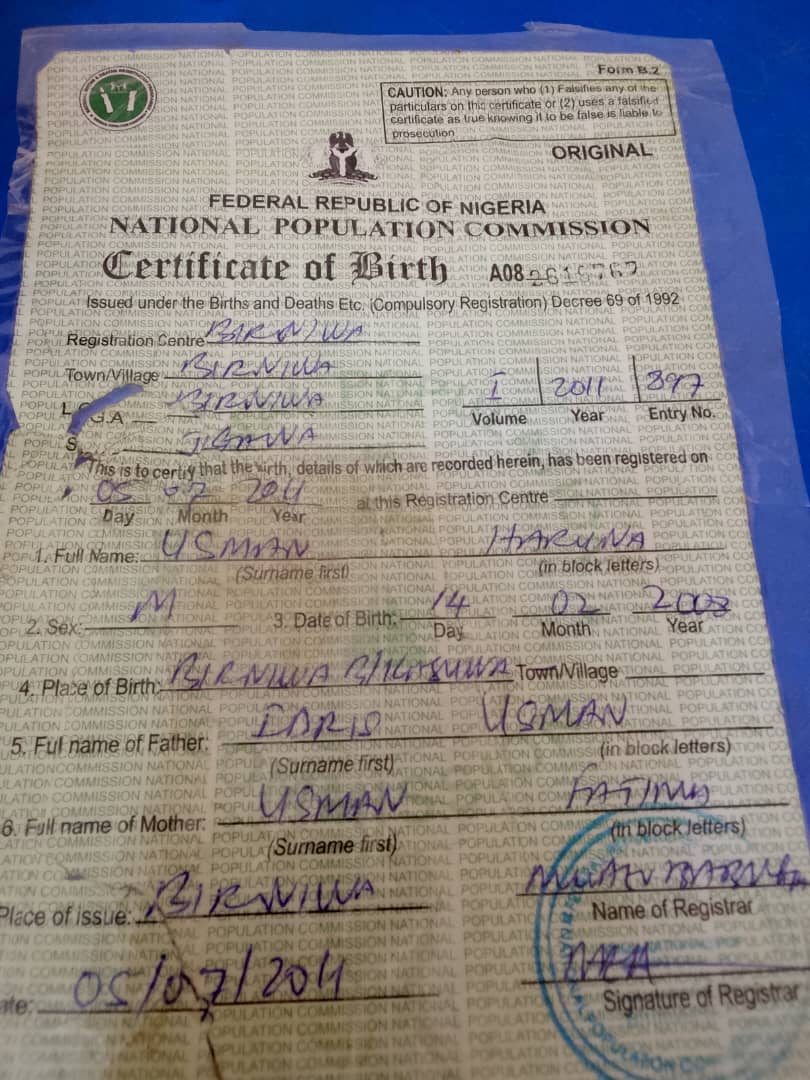 Form B.2
CAUTION: Any person who (1) Falsifies any of the
particulars on this certificate or (2) uses a falsified
certificate as true knowing it to be false is liable to
prosecution
ORIGINAL
FEDERAL REPUBLIC OF NIGERIA
NATIONAL POPULATION COMMISSION
Certificate of Birth A08
Issued under the Births and Deaths Etc. (Compulsory Registration) Decree 69 of 1992
Registration Centre BIRNIWA
Town/Village BIRNIWA
L.G.A BIRNIWA
I 2011 897
Volume Year Entry No.
S JIGAWA
This is to certify that the birth, details of which are recorded herein, has been registered on
05 07 2011 at this Registration Centre
Day Month Year
1. Full Name: USMAN HARUNA
(Surname first) (in block letters)
2. Sex: M 3. Date of Birth: 14 02 2008
Day Month Year
4. Place of Birth: BIRNIWA B/KASUWA Town/Village
5. Ful name of Father: IDRIS USMAN
(Surname first) (in block letters)
6. Full name of Mother: USMAN FATIMA
(Surname first) (in block letters)
Place of issue: BIRNIWA
Name of Registrar
ate: 05/07/2011
Signature of Registrar